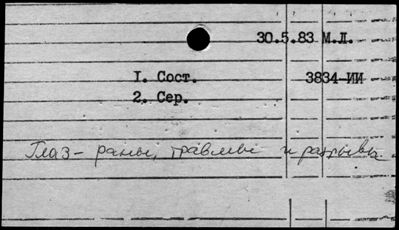 30.5.83 М.Л.
I. Сост. 3834-ИИ
2. Сер.
Глаз - раны, травмы и разрывы.